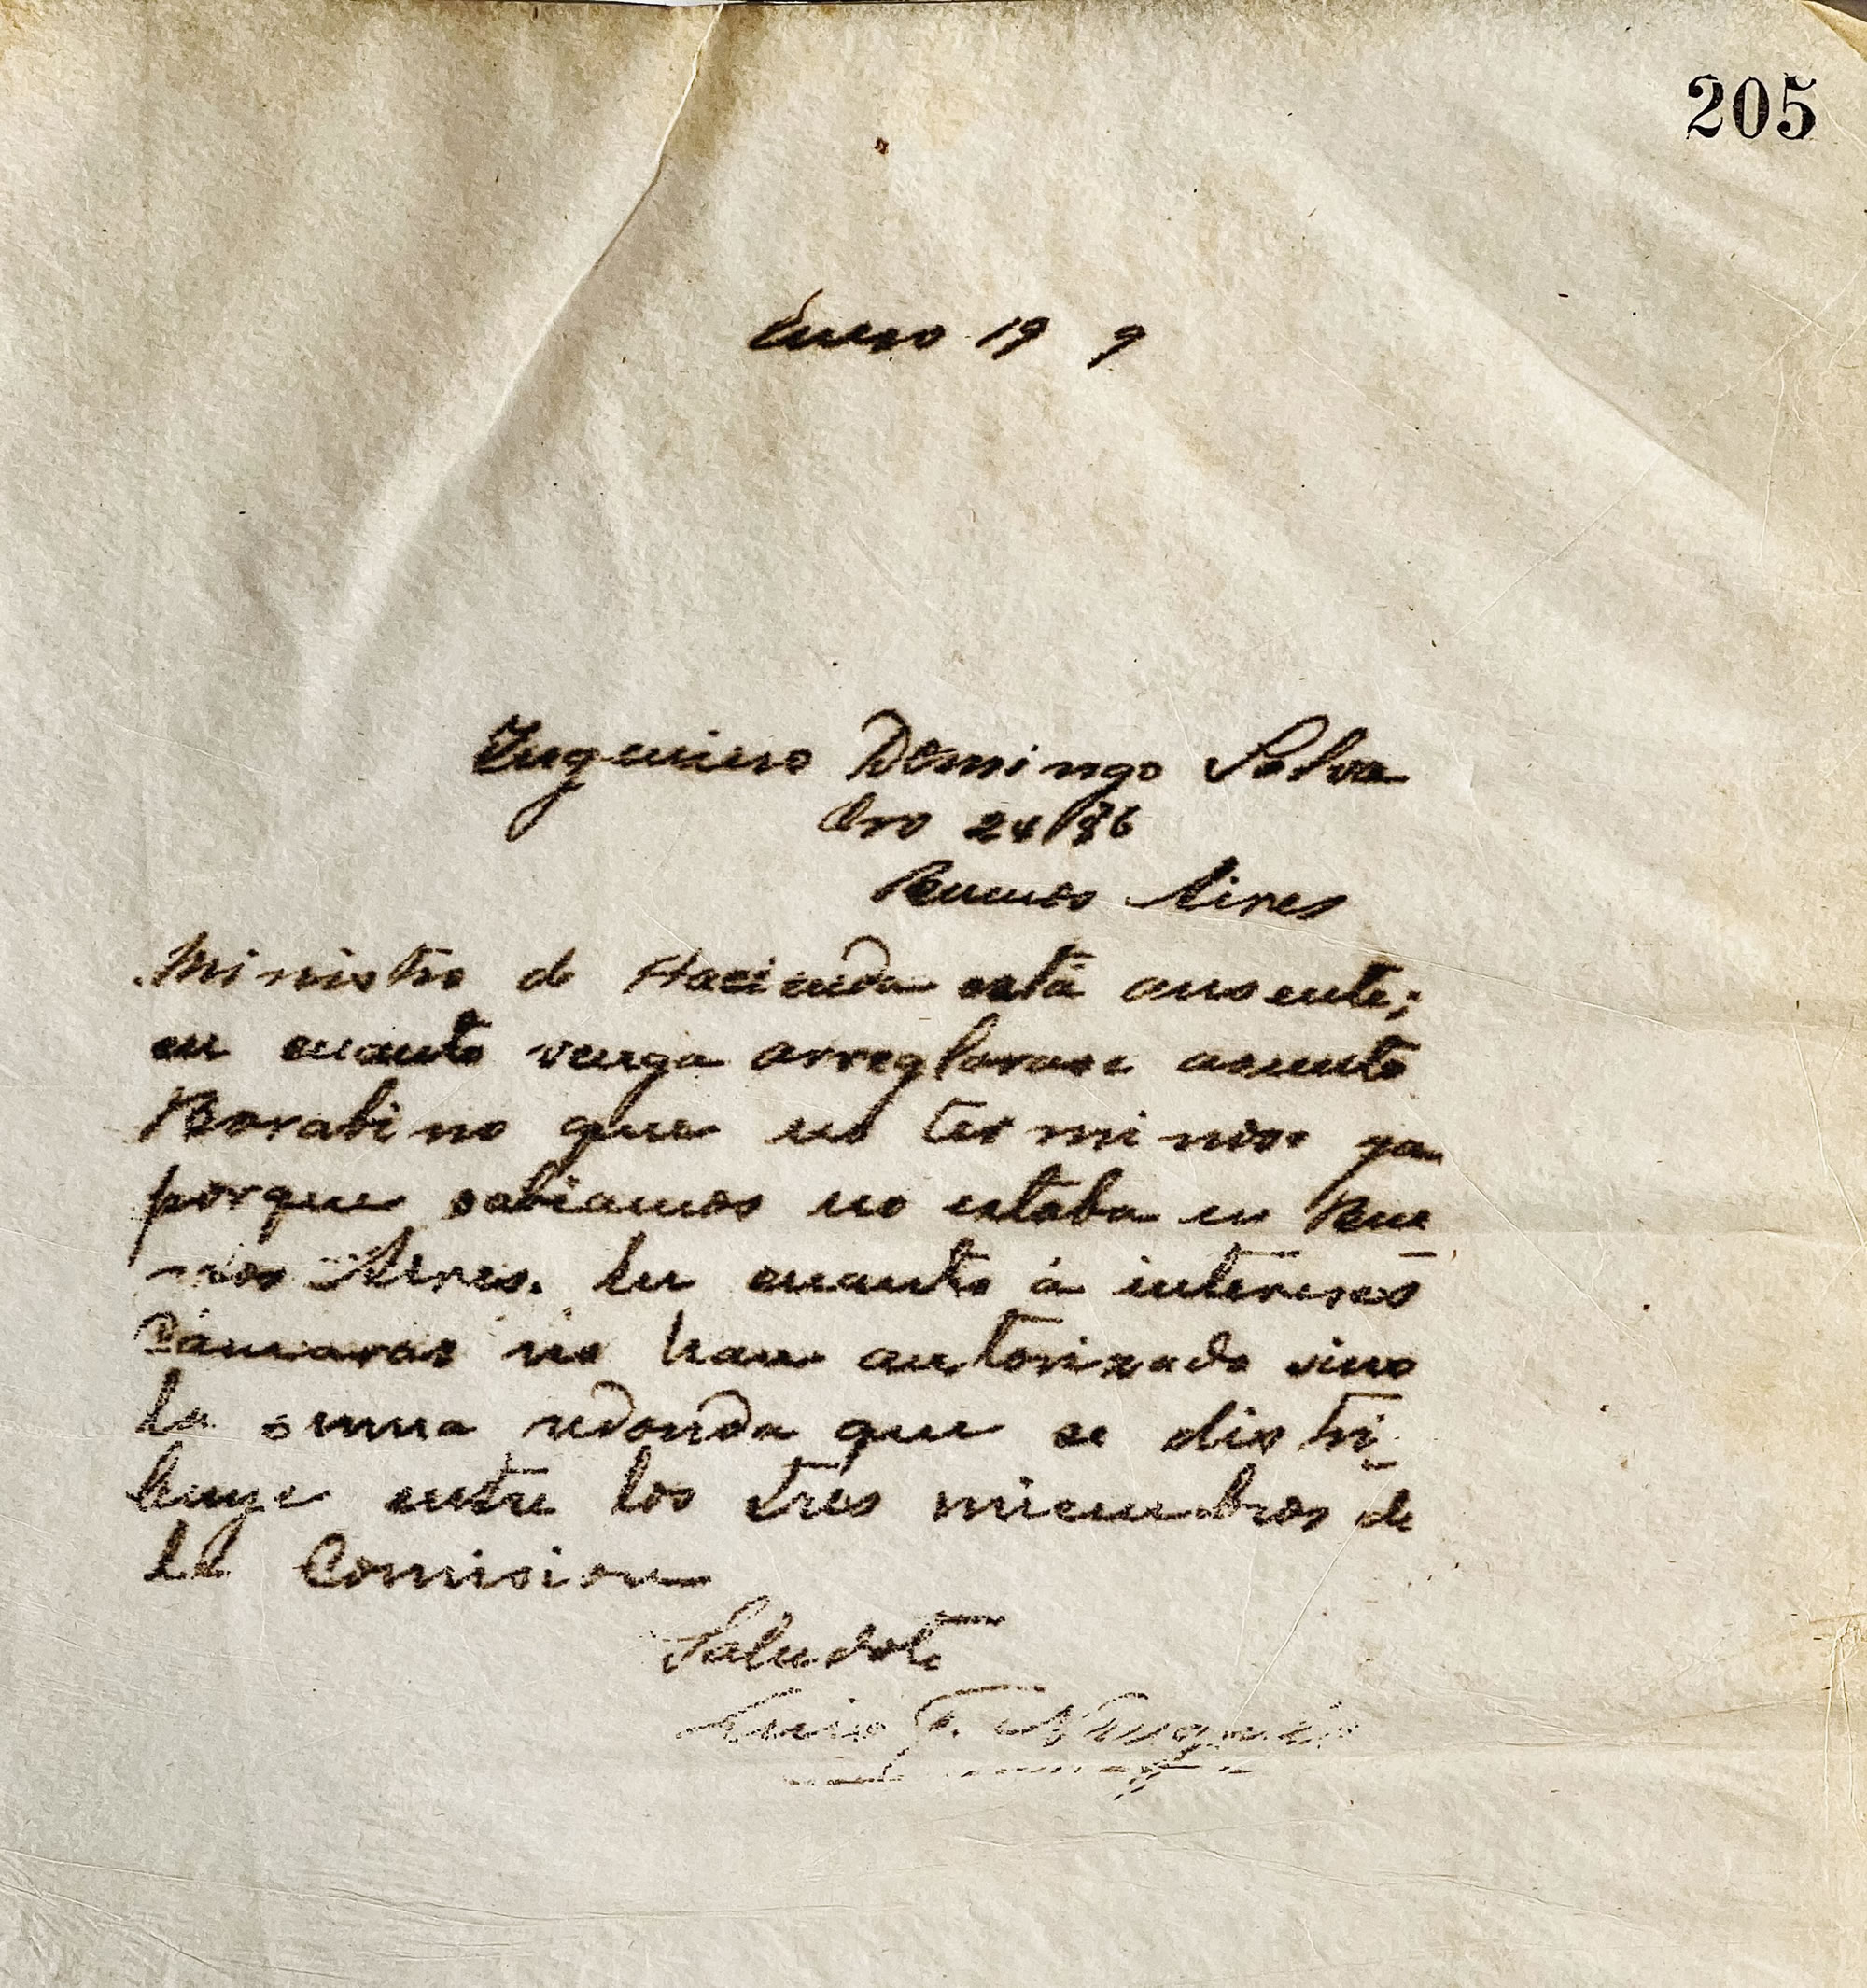 205
Enero 19 9
Ingeniero Domingo Selva
Oro 24186
Buenos Aires
Ministro de Hacienda está ausente;
en cuanto venga arreglarase asunto
Borabino que no terminose ya
porque sabiamos no estaba en Bue
nos Aires. En cuanto á intereses
Cámaras no han autorizado sino
la suma redonda que se distri
buye entre los tres miembros de
la Comision
Saludote